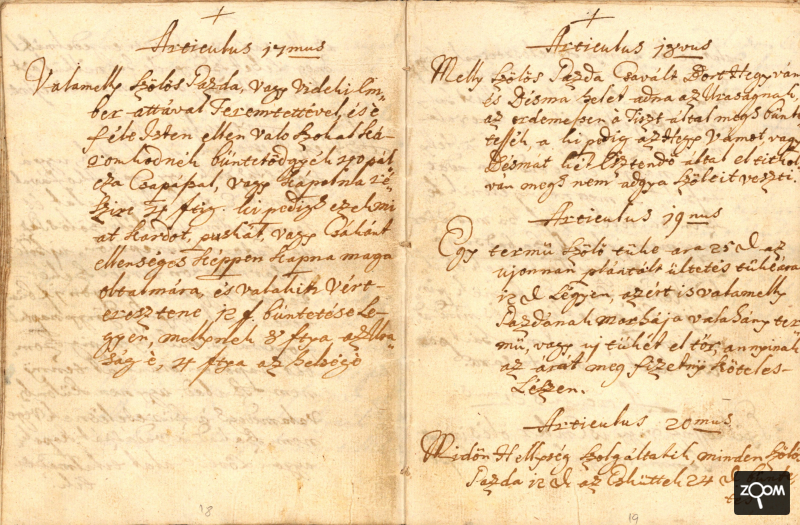 Articulus 17mus
Valamelly Szölös Gazda, vagy Videki Em-
ber attával Teremtettével, és e
féle Isten ellen valo Szokal Ká-
romkodnék büntetödgyék 40 pál-
cza Csapással, vagy Kápolna ré-
szire ftig. ki pedig ezek mi
at Kardot, puskát, vagy Csákánt
ellenséges képpen kapna maga
oltalmára, és valakin vért
eresztene, 12 f. büntetése Le-
gyen, mellynek 8 ftya az Ura-
ság é, 4 ftya az helségé
18
Articulus 18vus
Melly Szölös Gazda Csavált Bort Hegy vám
és Désma helet adna az Uraságnak,
az erdemessen a Tiszt által meg bünte
tessék, a ki pedig az Hegy Vámot, vagy
Désmát két Esztendö által eltitkol
van meg nem adgya Szöleit veszti.
Articulus 19nus
Egy termü Szölö tüke ara 25 d. az
ujonnan plántált ültetés tüke ára
12 d. Légyen, azért is valamelly
Gazdának marhája valahány ter
mü, vagy uj tükét el tör, annyinak
az árát meg fizetny köteles-
Lészen.
Articulus 20mus
Midön Hellység Szolgáltatik minden Szölös
Gazda 12 d. az Esküttek 24 d.
19
ZOOM